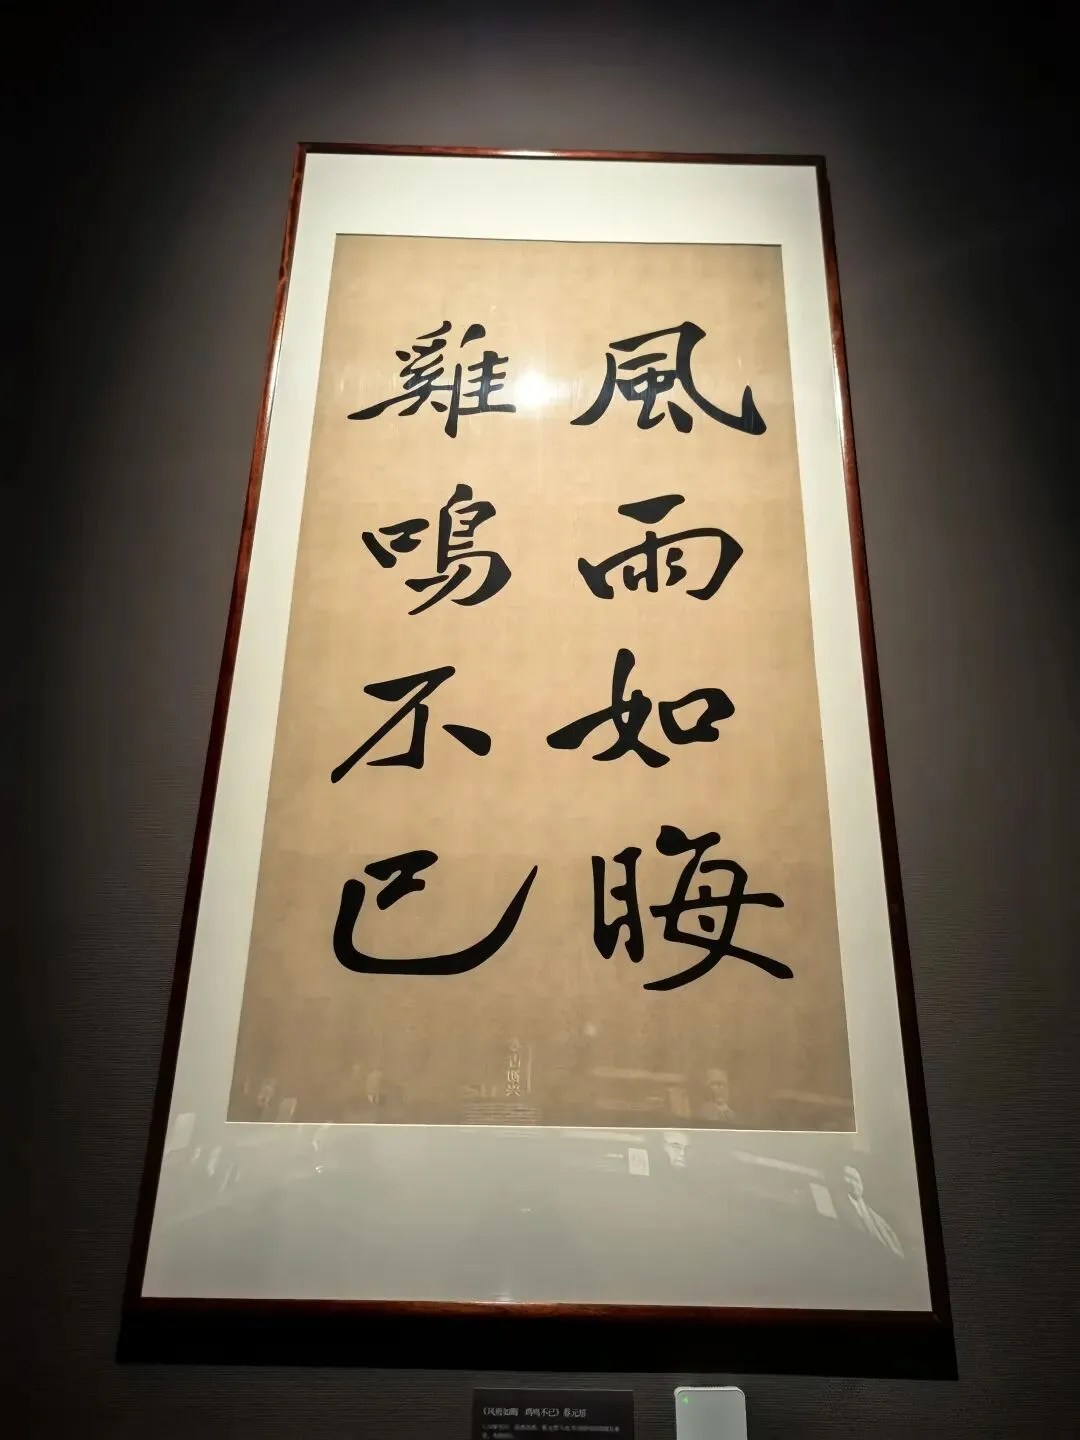 風雨如晦
雞鳴不已
《风雨如晦 鸡鸣不已》蔡元培